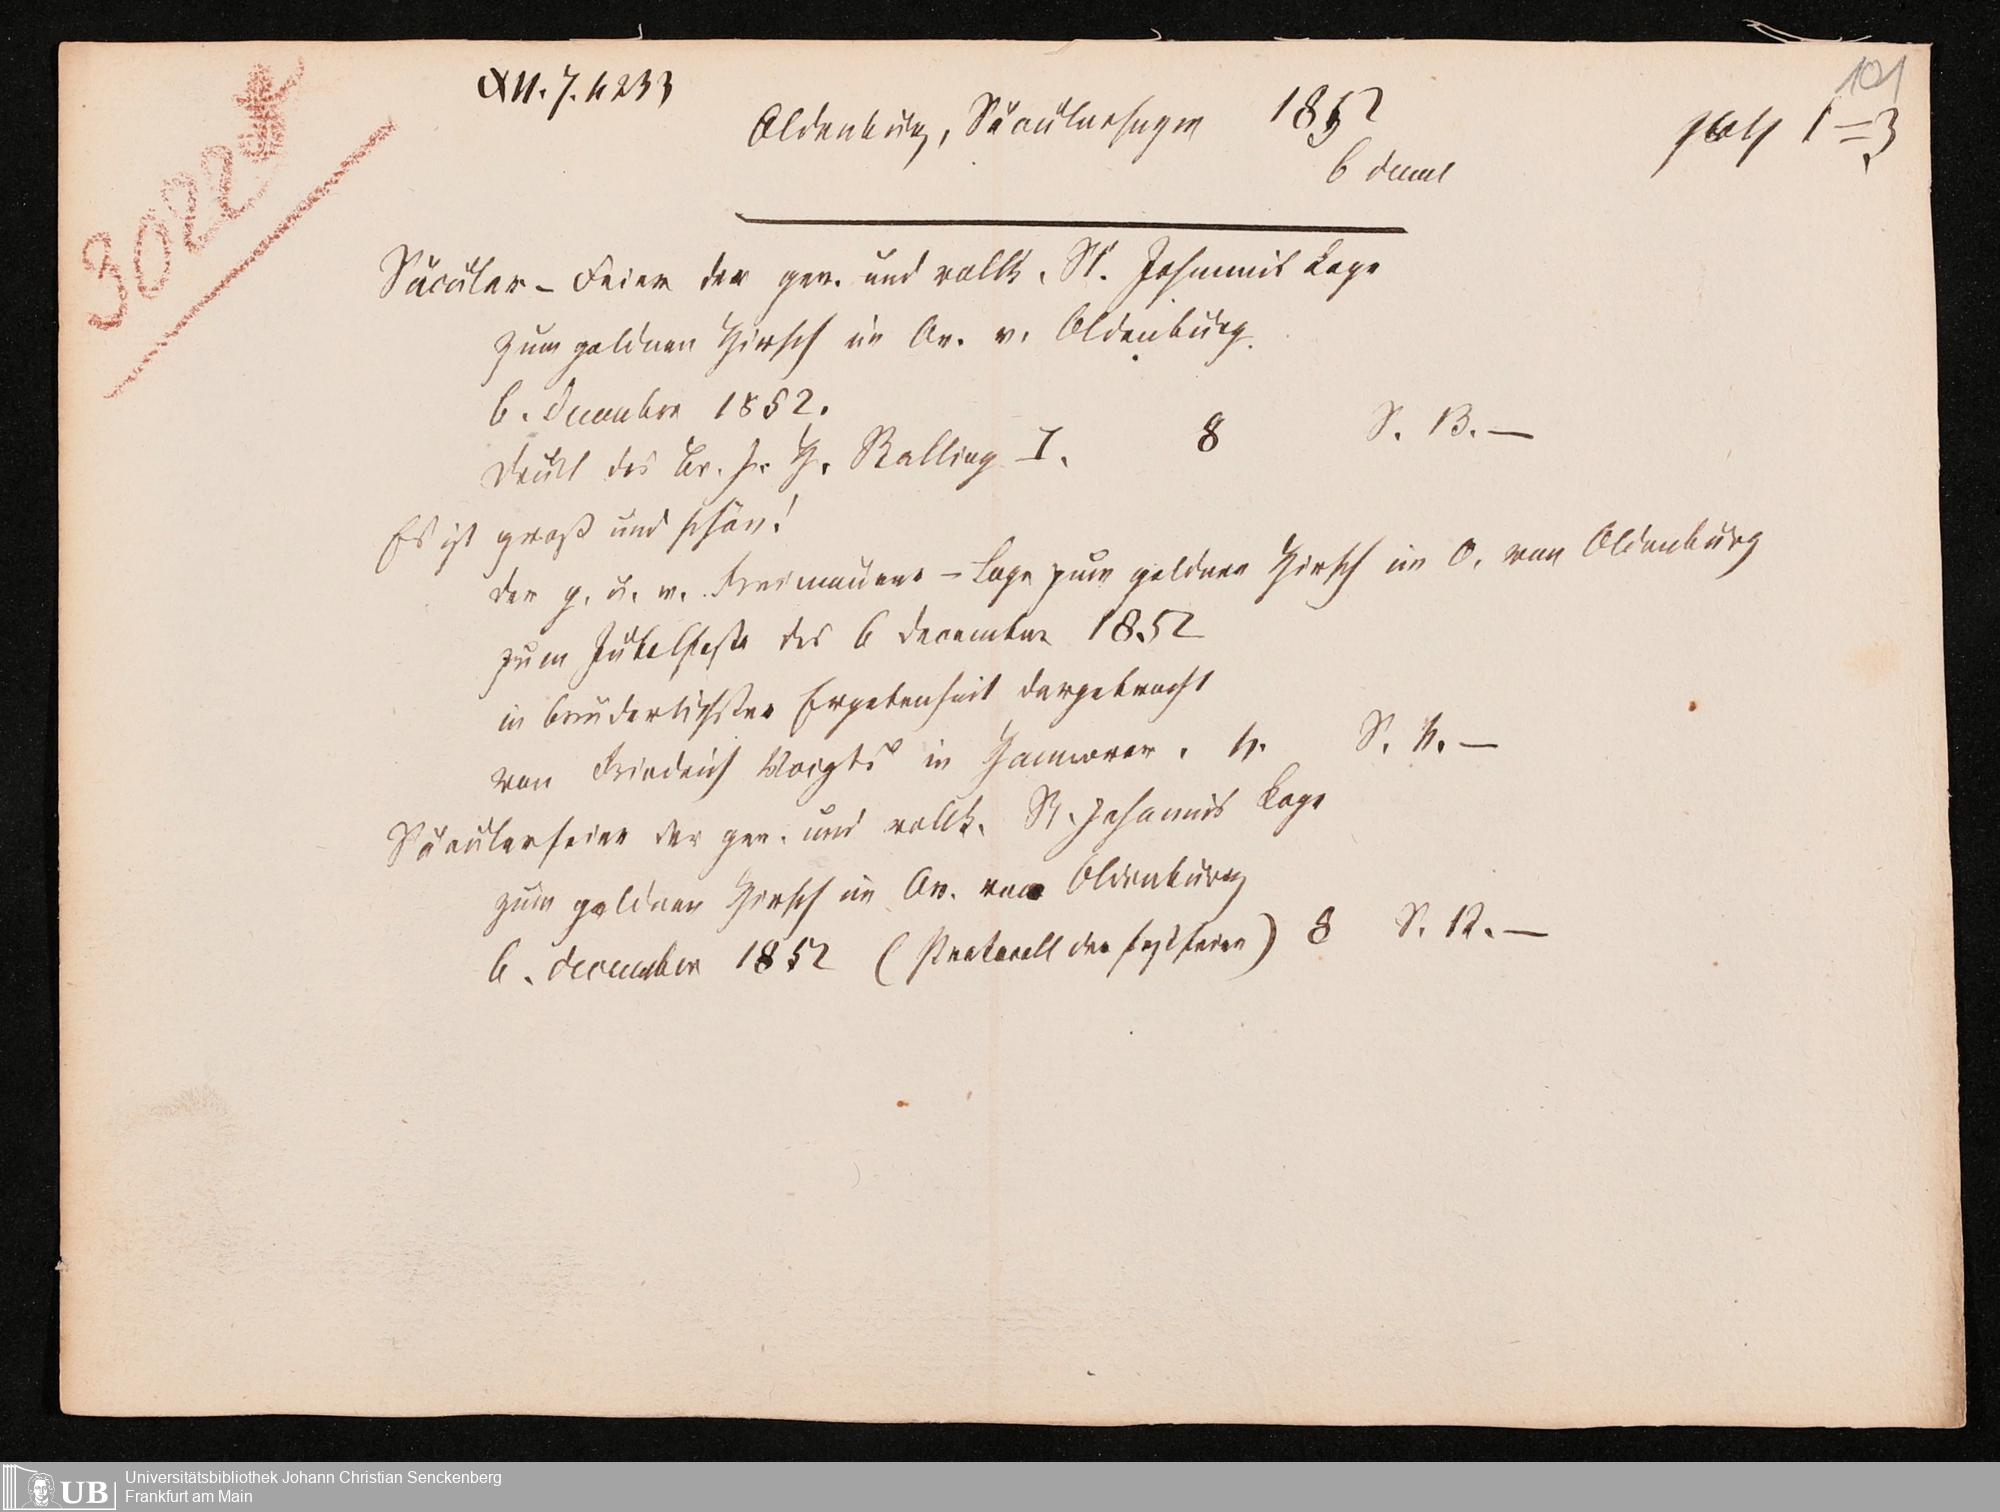 3022
N. 7. 4233
101
Oldenburg, Säcularfeyer 1852
6 decemb
1=3
Säcular-Feier der ger. und vollk. St. Johannis Loge
zum goldnen Hirsch im Or. v. Oldenburg.
6. December 1852.
Druck des Br. H. Stalling I. 8 S. 13.—
Es ist groß und schön!
der g. u. v. Freimaurer-Loge zum goldnen Hirsch im O. von Oldenburg
zum Jubelfeste des 6 December 1852
in brüderlichster Ergebenheit dargebracht
von Friedrich Voigts in Hannover. 4. S. 4.—
Säcularfeier der ger. und vollk. St. Johannis Loge
zum goldnen Hirsch im Or. von Oldenburg
6. December 1852 (Protocoll der Festfeier) 8 S. 12.—
UB
Universitätsbibliothek Johann Christian Senckenberg
Frankfurt am Main